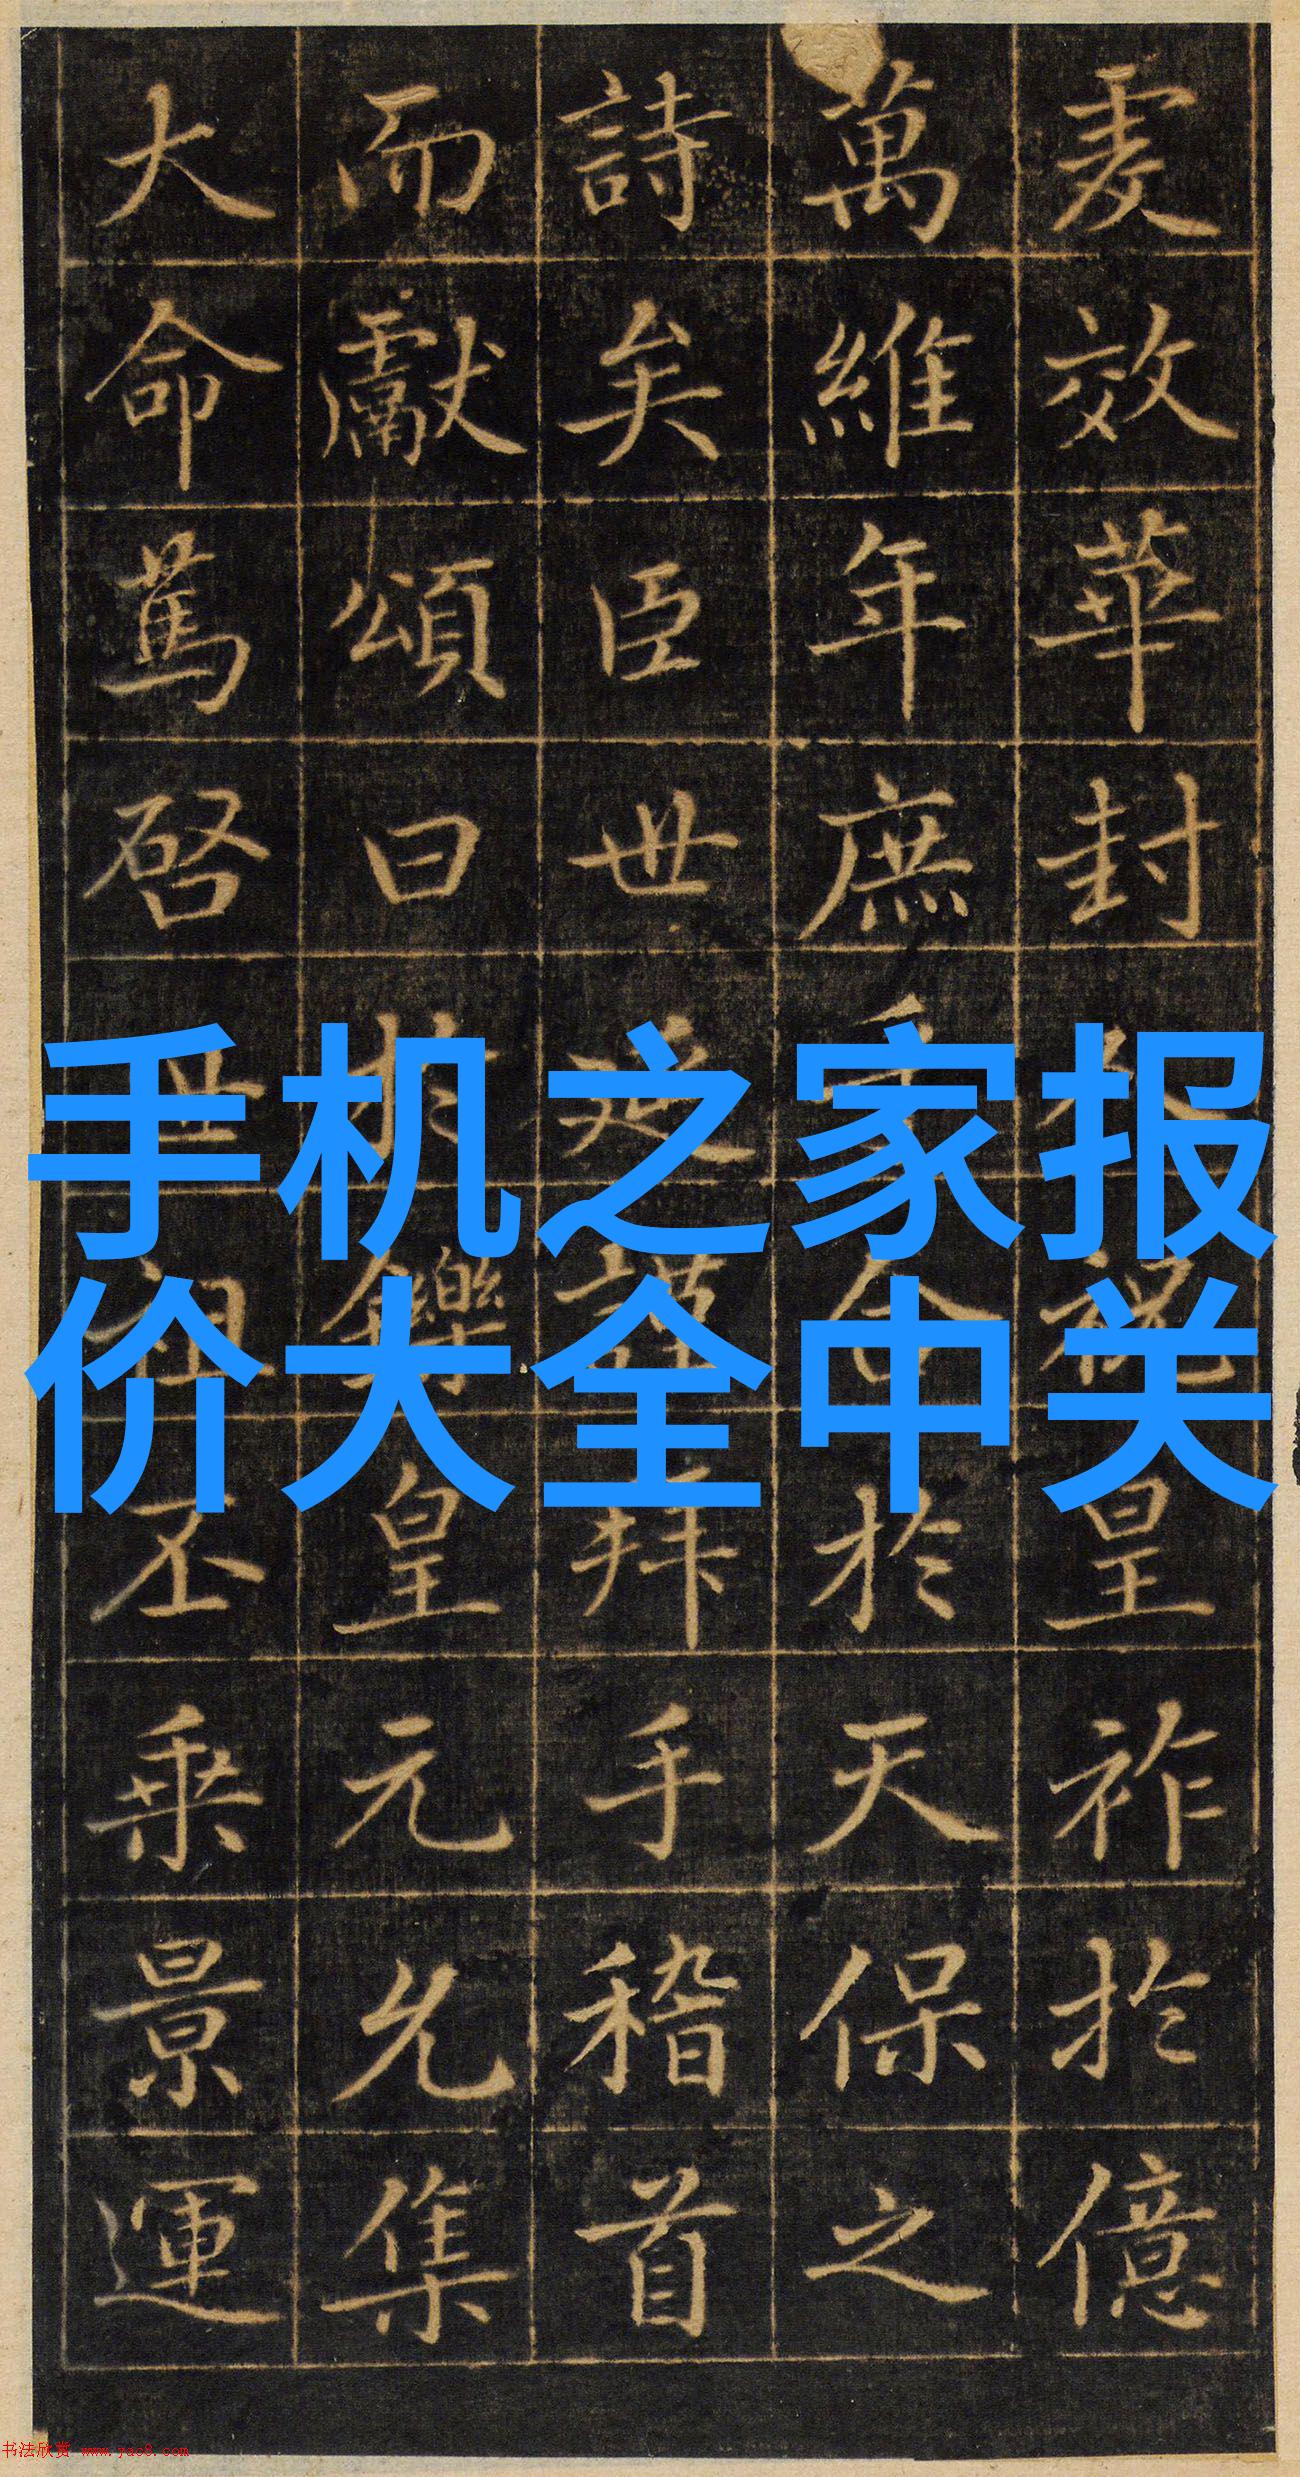 虔效華封祝皇祚於億
萬維年庶于合於天保之
詩矣臣世延謹拜手稽首
而獻頌曰於鑠皇元允集
大命篤啓世祖丕乘景運
手机之家报
价大全中关
书法欣赏 www.yac8.com